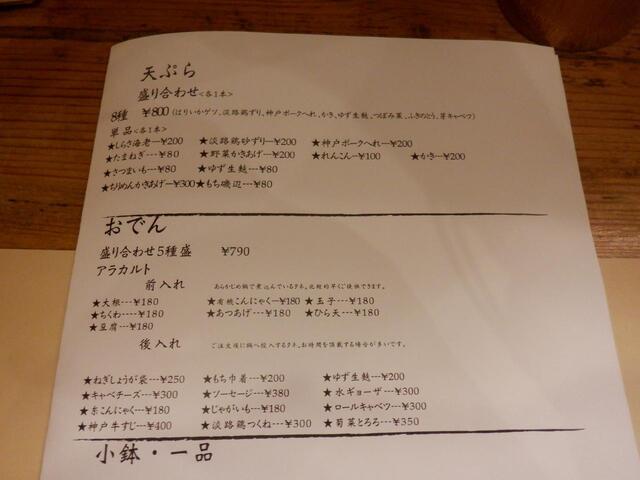 天ぷら
盛り合わせ<各1本>
8種 ¥800(はりいかゲソ、淡路鶏ずり、神戸ポークへれ、かき、ゆず生麩、つぼみ菜、ふきのとう、芽キャベツ)
単品<各1本>
★しらさ海老--¥200 ★淡路鶏砂ずり--¥200 ★神戸ポークへれ--¥200
★たまねぎ---¥80 ★野菜かきあげ--¥200 ★れんこん--¥100 ★かき--¥200
★さつまいも--¥80 ★ゆず生麩--¥80
★ちりめんかきあげ--¥300★もち磯辺--¥80
おでん
盛り合わせ5種盛 ¥790
アラカルト
前入れ あらかじめ鍋で煮込んでいるタネ。比較的早くご提供できます。
★大根---¥180 ★有機こんにゃく--¥180 ★玉子---¥180
★ちくわ----¥180 ★あつあげ---¥180 ★ひら天---¥180
★豆腐---¥180
後入れ ご注文後に鍋へ投入するタネ。お時間を頂戴する場合が多いです。
★ねぎしょうが袋---¥250 ★もち巾着---¥200 ★ゆず生麩---¥200
★キャベチーズ---¥300 ★ソーセージ---¥380 ★水ギョーザ---¥300
★糸こんにゃく---¥180 ★じゃがいも---¥180 ★ロールキャベツ---¥300
★神戸牛すじ---¥400 ★淡路鶏つくね---¥300 ★菊菜とろろ---¥350
小鉢・一品